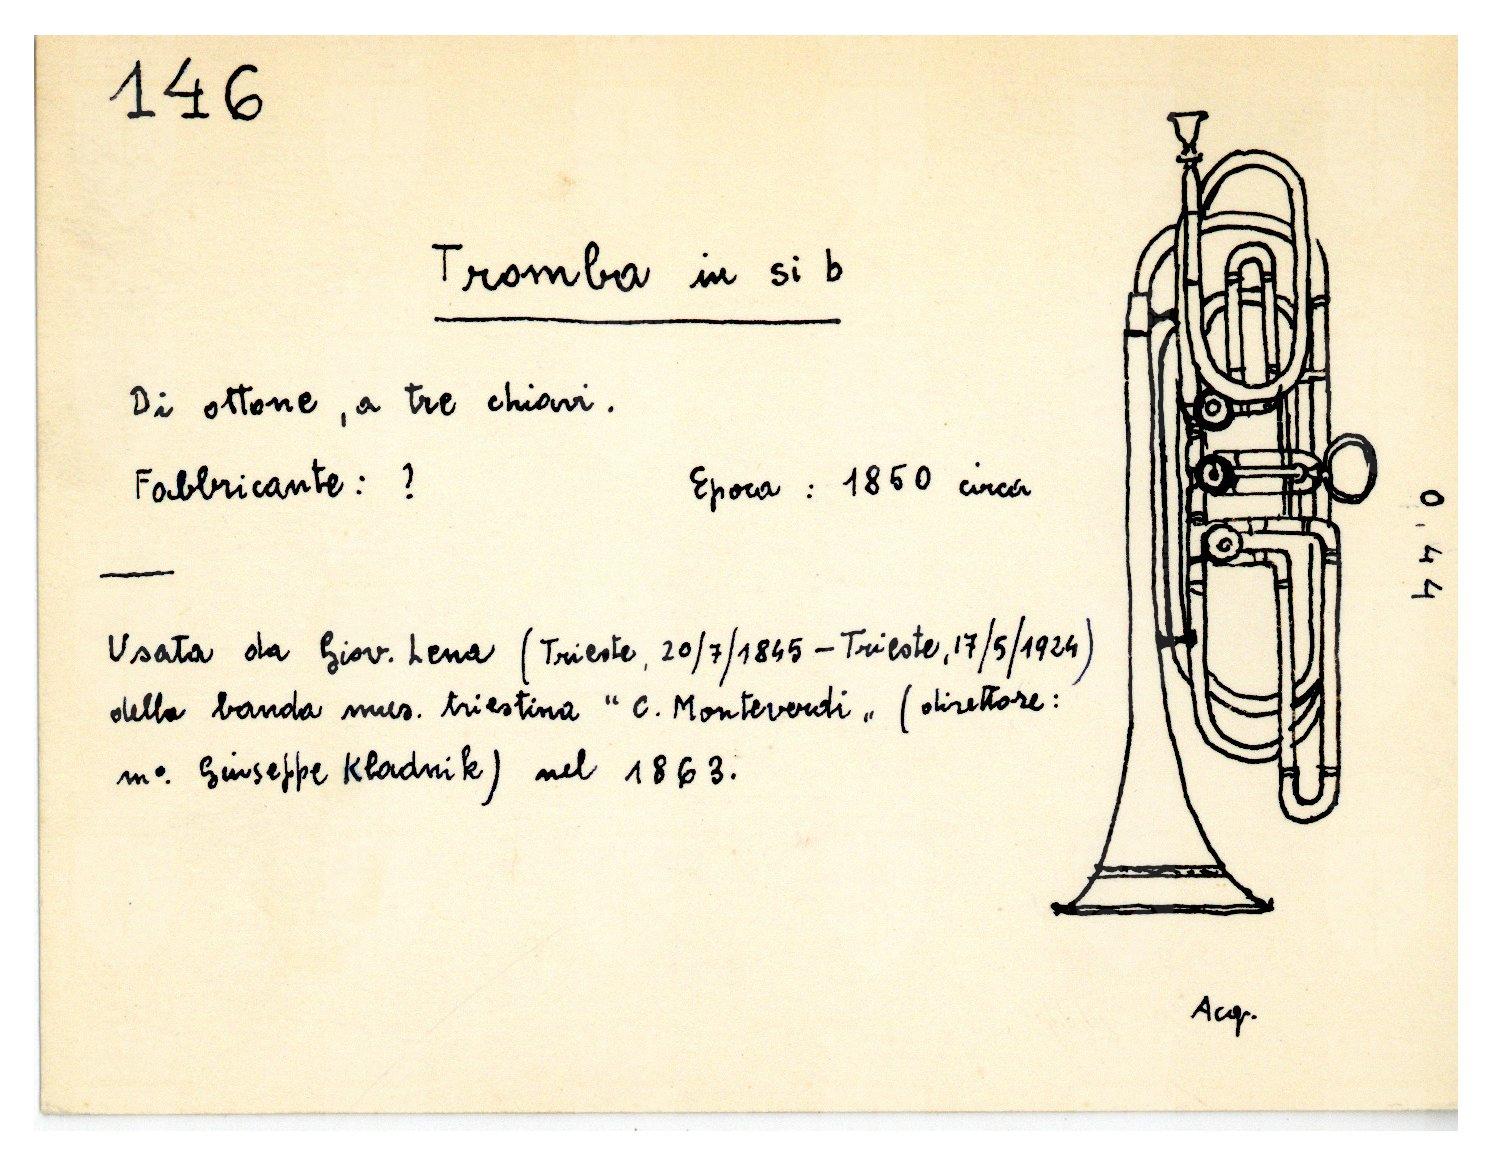 146
Tromba in si b
Di ottone, a tre chiavi.
Fabbricante: ?
Epoca : 1850 circa
Usata da Giov. Lena (Trieste, 20/7/1845 – Trieste, 17/5/1924)
della banda mus. triestina “ C. Monteverdi „ (direttore:
mº. Giuseppe Kladnik) nel 1863.
0.44
Acq.